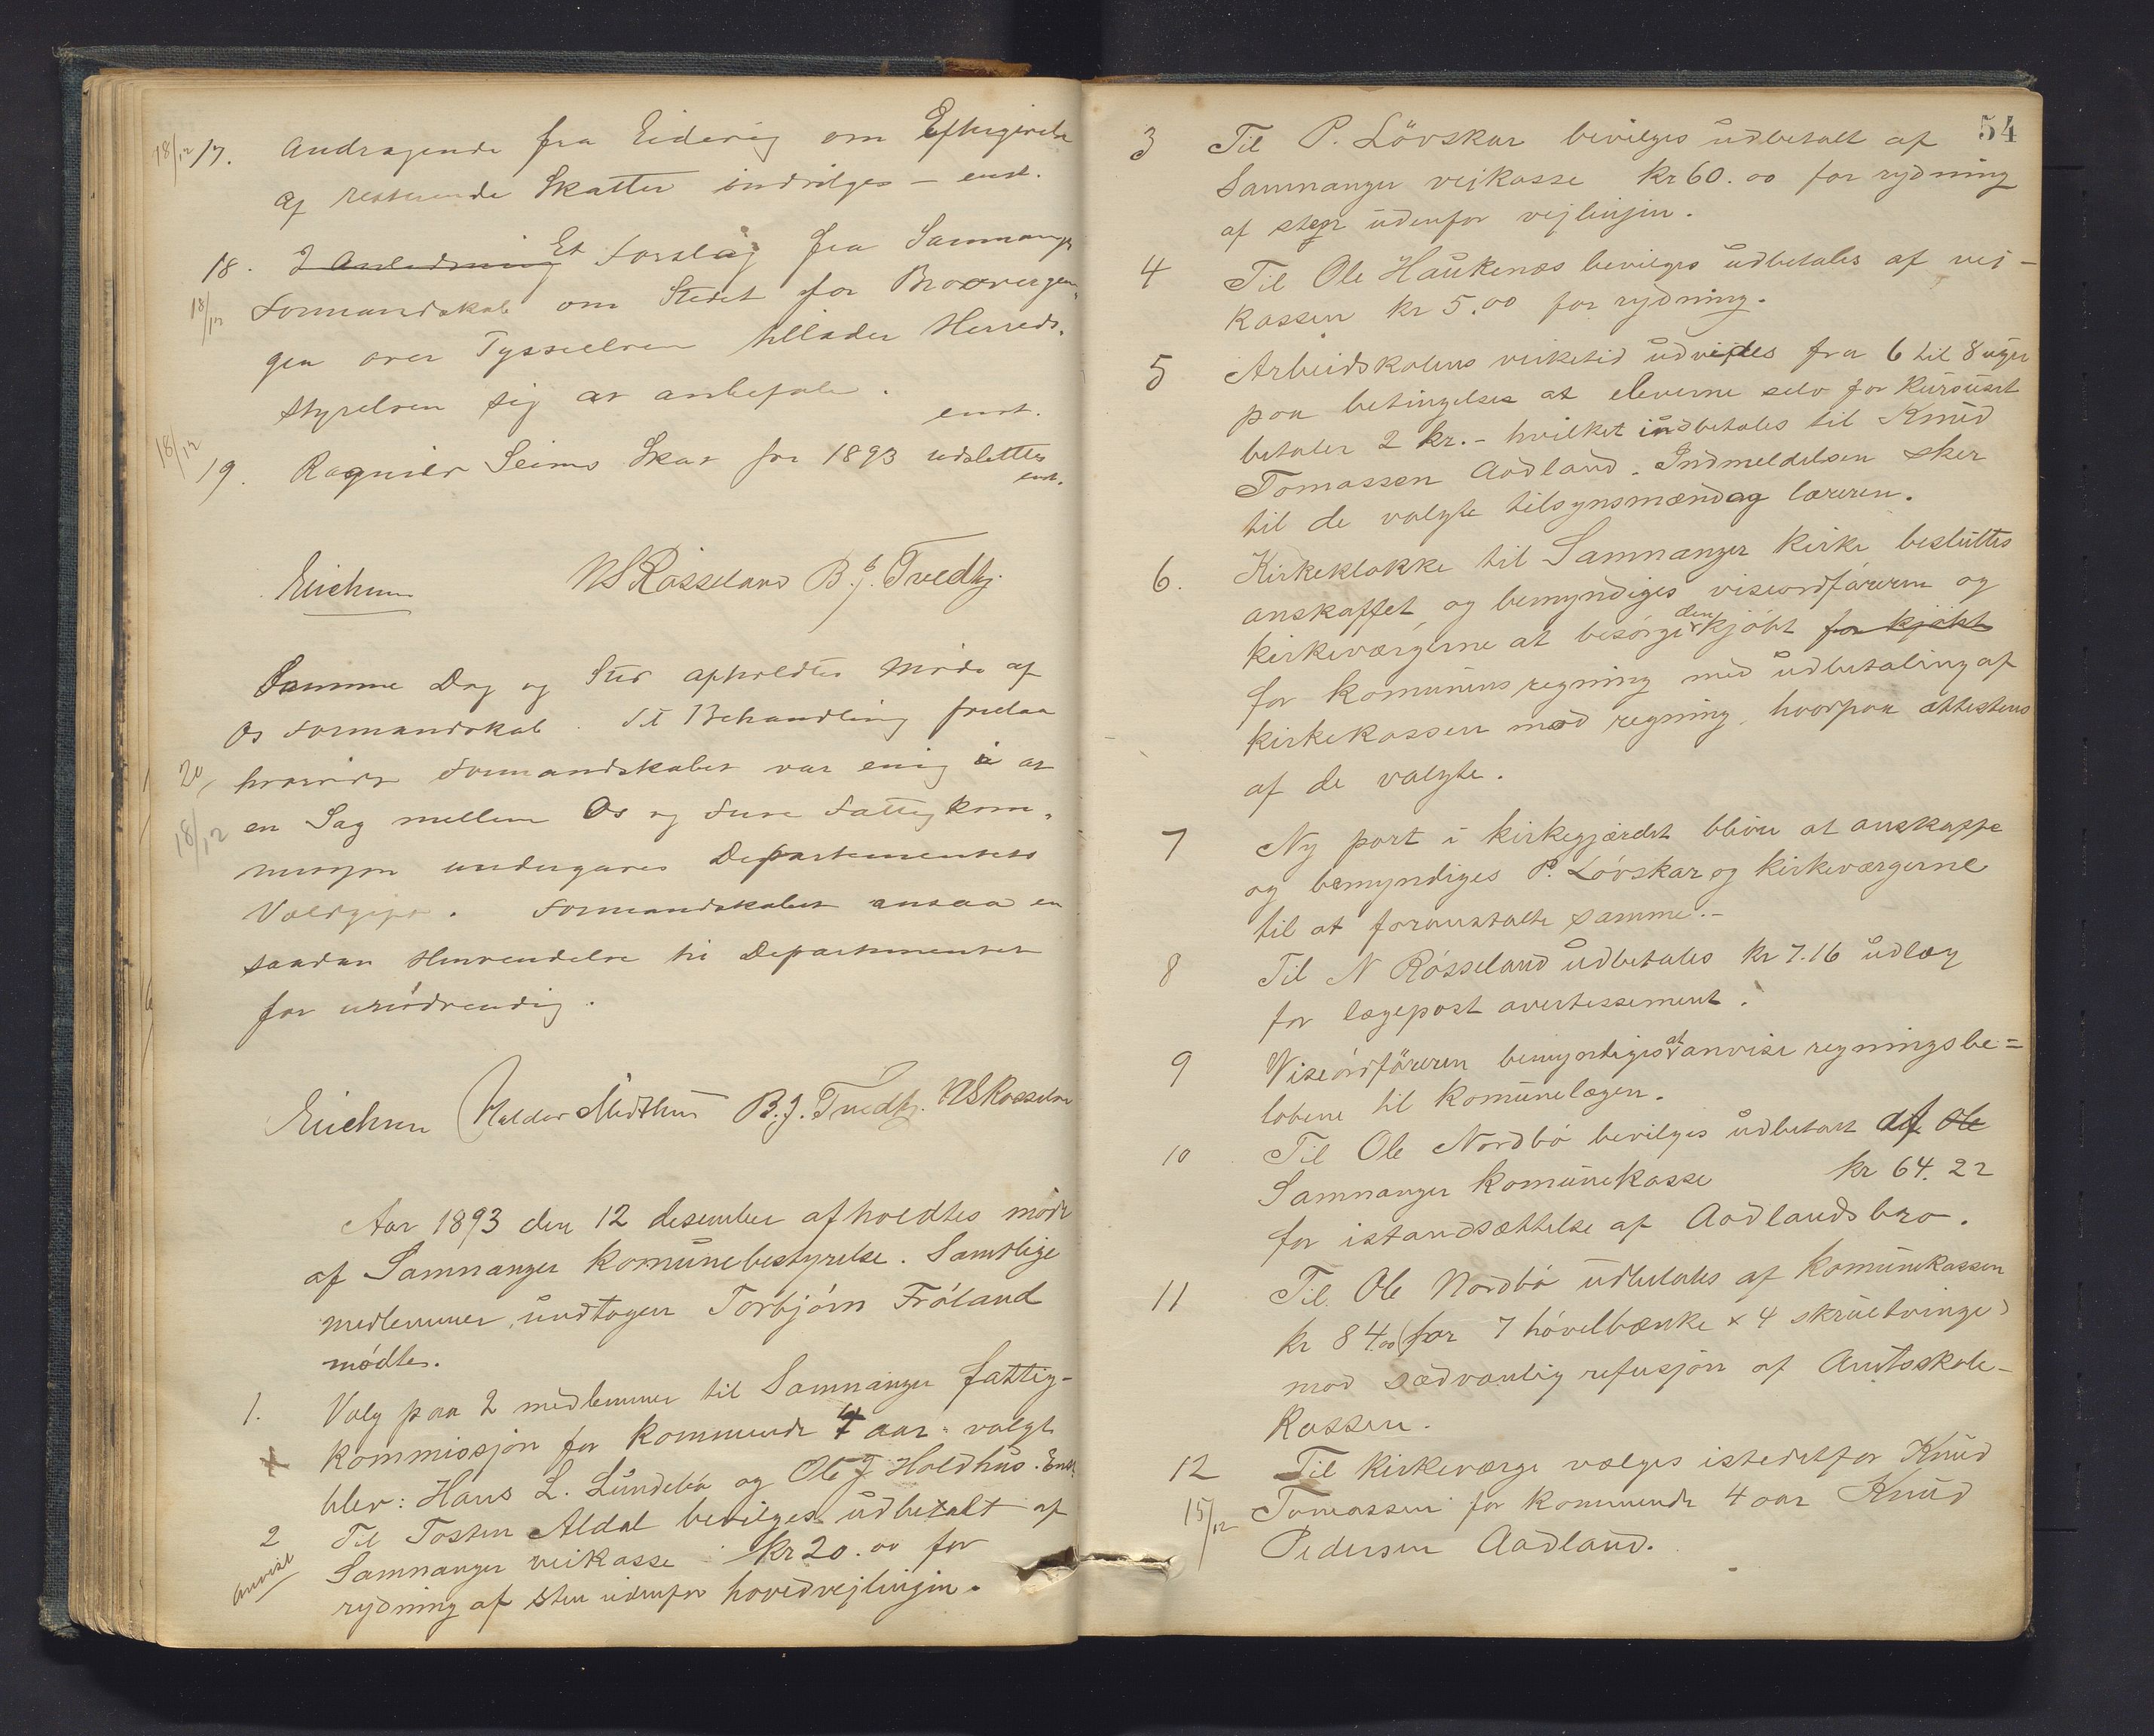 18/12 17. Andragende fra Eidevig om Eftergivelse
af resterende Skatter indvilges – enst.
18. I Anledning Et Forslag fra Samnanger
18/12 Formandskab om Stedet for Broovergan-
gen over Tysseelven tillader Herreds-
styrelsen sig at anbefale. enst.
18/12
19. Ragnild Seims Skat for 1893 udslettes
enst.
Erichsen NSRösseland B. J. Tvedt
Samme Dag og Sted afholdtes Möde af
Os Formandskab. Til Behandling forelaa
20, hvorvidt Formandskabet var enig i at
18/12 en Sag mellem Os og Fuse Fattigkom-
mission undergaves Departementets
Voldgift. Formandskabet ansaa en
saadan Henvendelse til Departementet
for unödvendig.
Erichsen Halder Midthus B. J. Tvedt NSRösseland
Aar 1893 den 12 desember afholdtes möde
af Samnanger komünebestyrelse. Samtlige
medlemmer, undtagen Torbjörn Fröland
mödte.
1. Valg paa 2 medlemmer til Samnanger fattig-
x kommissjon for kommende 4 aar: valgt
blev: Hans L. Lündebö og Ole J Holdhüs. Enst.
2 Til Tosten Aldal bevilges üdbetalt af
anvist Samnanger veikasse kr 20.00 for
rydning af sten udenfor hovedvejlinjin.
54
3 Til P. Lövskar bevilges üdbetalt af
Samnanger vejkasse kr 60.00 for rydning
af sten üdenfor vejlinjin.
4 Til Ole Haükenæs bevilges üdbetales af vej-
kassen kr 5.00 for rydning.
5 Arbeidskolens virketid üdvides fra 6 til 8 uger
paa betingelse at eleverne selv for kürsüset
betaler 2 kr. – hvilket indbetales til Knüd
Tomassen Aadland. Indmeldelsen sker
til de valgte tilsynsmænd og læreren.
6. Kirkeklokke til Samnanger kirke beslüttes
anskaffet og bemyndiges viseordföreren og
kirkeværgerne at besörge den kjöbt for kjöbt
for komünens regning med üdbetaling af
kirkekassen mod regning, hvorpaa attesteres
af de valgte.
7 Ny port i kirkegjærdet bliver at anskaffe
og bemyndiges P. Lövskar og kirkeværgerne
til at foranstalte samme. –
8 Til N Rösseland üdbetales kr 7.16 üdlæg
for lægepost avertissement.
9 Viseordföreren bemyndiges at anvise regningsbe=
löbene til komünelægen.
10 Til Ole Nordbö bevilges üdbetalt af Ole
Samnanger komünekasse kr 64.22
for istandsættelse af Aadlandsbro.
11 Til Ole Nordbö üdbetales af komünekassen
kr 84.00 (for 7 hövelbænke x 4 skrüetvinge)
mod sædvanlig refusjon af Amtsskole-
kassen.
12 Til kirkeværge vælges istedetfor Knüd
15/12 Tomassen for kommende 4 aar Knüd
Pedersen Aadland.